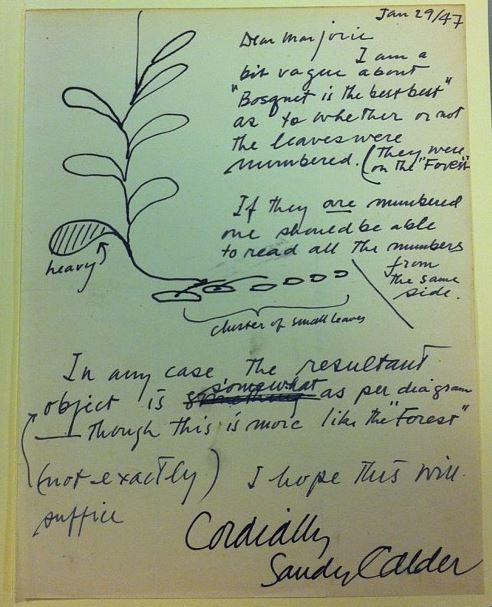 Jan 29/47
Dear Marjorie
I am a
bit vague about
"Bosquet is the best best"
as to whether or not
the leaves were
numbered. (They were
on the "Forest"
If they are numbered
one should be able
to read all the numbers
from
the same
side.
heavy
cluster of small leaves
In any case the resultant
object is something somewhat as per diagram
— though this is more like the "Forest"
(not exactly) I hope this will
suffice
Cordially
Sandy Calder